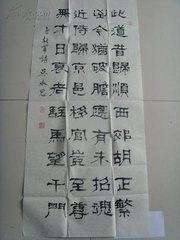 此道昔歸順西郊胡正繁
至今猶破膽應有未招魂
近侍歸京邑移官豈至尊
無才日衰老駐馬望千門